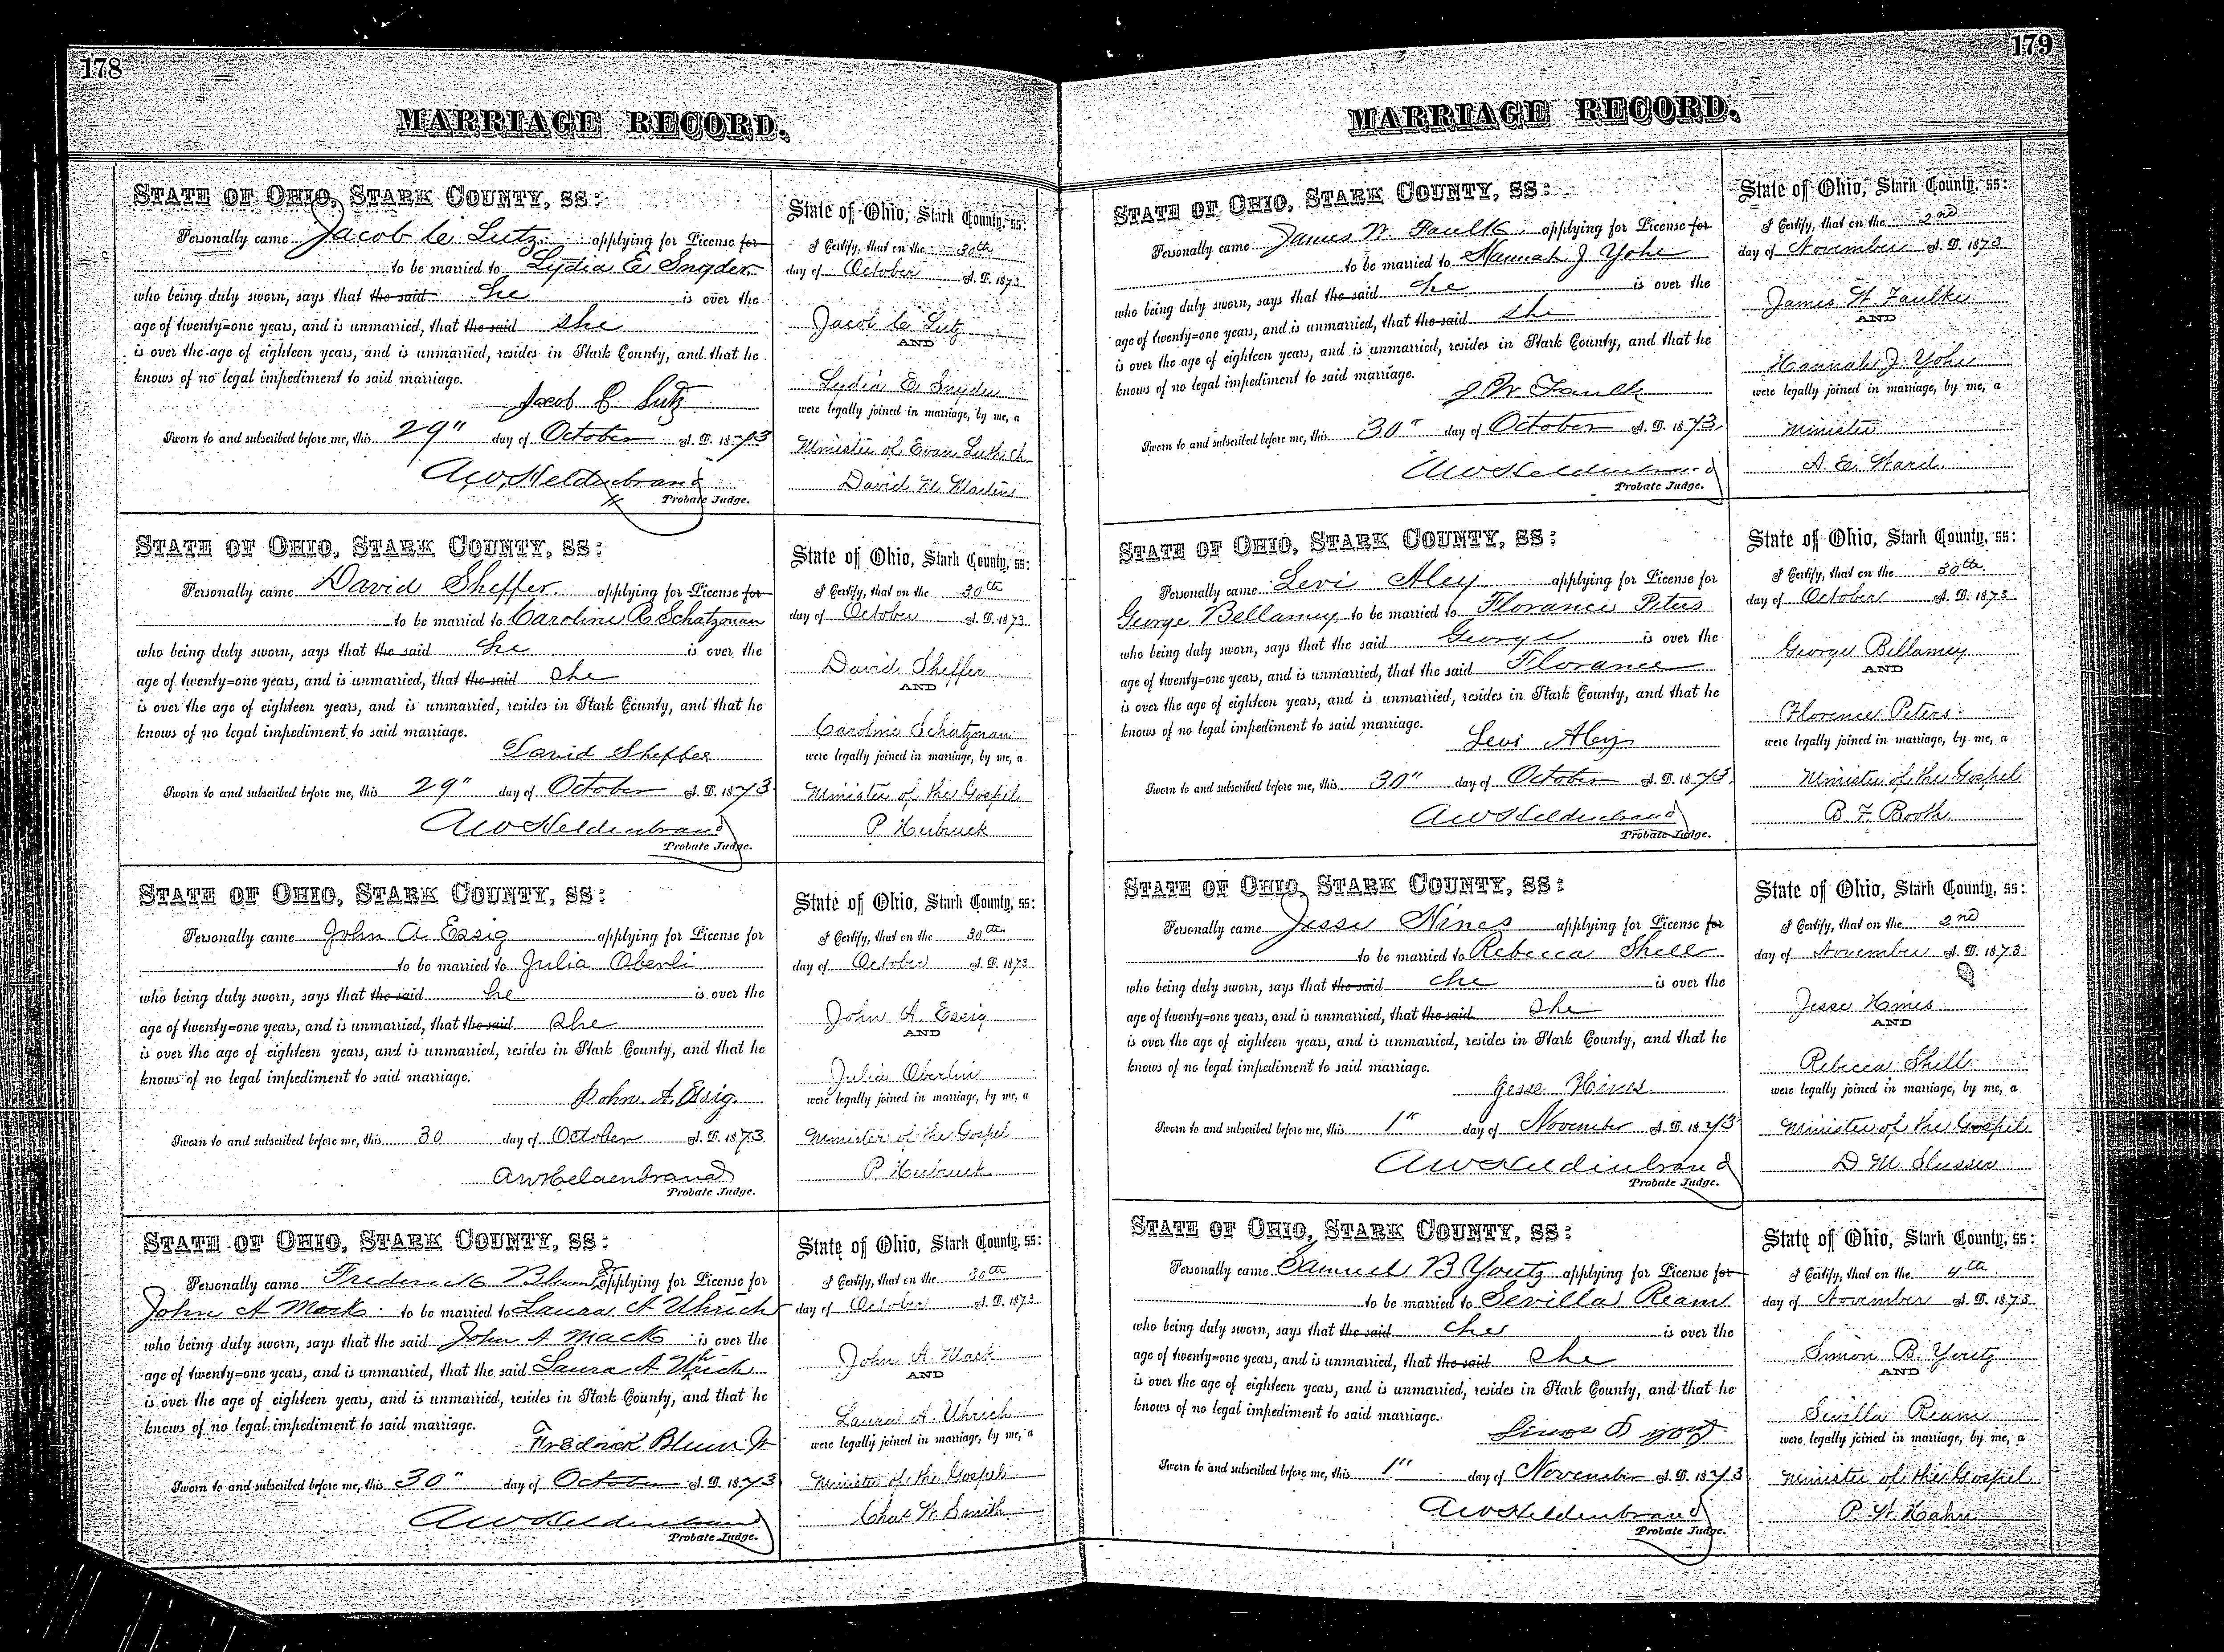 178
MARRIAGE RECORD.
STATE OF OHIO, STARK COUNTY, SS:
Personally came Jacob C Lutz applying for License for
to be married to Lydia E Snyder
who being duly sworn, says that the said he is over the
age of twenty=one years, and is unmarried, that the said she
is over the age of eighteen years, and is unmarried, resides in Stark County, and that he
knows of no legal impediment to said marriage.
Jacob C Lutz
Sworn to and subscribed before me, this 29" day of October A. D. 1873
A.W. Heldenbrand
Probate Judge.
State of Ohio, Stark County, ss:
I Certify, that on the 30th
day of October A. D. 1873
Jacob C Lutz
AND
Lydia E Snyder
were legally joined in marriage, by me, a
Minister of Evan Luth Ch
David M Martin
STATE OF OHIO, STARK COUNTY, SS:
Personally came David Sheffer applying for License for
to be married to Caroline R Schatzman
who being duly sworn, says that the said he is over the
age of twenty=one years, and is unmarried, that the said she
is over the age of eighteen years, and is unmarried, resides in Stark County, and that he
knows of no legal impediment to said marriage.
David Sheffer
Sworn to and subscribed before me, this 29" day of October A. D. 1873
AW Heldenbrand
Probate Judge.
State of Ohio, Stark County, ss:
I Certify, that on the 30th
day of October A. D. 1873
David Sheffer
AND
Caroline Schatzman
were legally joined in marriage, by me, a
Minister of the Gospel
P. Herbruck
STATE OF OHIO, STARK COUNTY, SS:
Personally came John A Essig applying for License for
to be married to Julia Oberli
who being duly sworn, says that the said he is over the
age of twenty=one years, and is unmarried, that the said she
is over the age of eighteen years, and is unmarried, resides in Stark County, and that he
knows of no legal impediment to said marriage.
John A. Essig.
Sworn to and subscribed before me, this 30 day of October A. D. 1873
AW Heldenbrand
Probate Judge.
State of Ohio, Stark County, ss:
I Certify, that on the 30th
day of October A. D. 1873
John A Essig
AND
Julia Oberlin
were legally joined in marriage, by me, a
Minister of the Gospel
P. Herbruck
STATE OF OHIO, STARK COUNTY, SS:
Personally came Frederick Blum Jr applying for License for
John A Mack to be married to Laura A Uhrich
who being duly sworn, says that the said John A Mack is over the
age of twenty=one years, and is unmarried, that the said Laura A Uhrich
is over the age of eighteen years, and is unmarried, resides in Stark County, and that he
knows of no legal impediment to said marriage.
Fredrick Blum Jr
Sworn to and subscribed before me, this 30" day of October A. D. 1873
AW Heldenbrand
Probate Judge.
State of Ohio, Stark County, ss:
I Certify, that on the 30th
day of October A. D. 1873
John A. Mack
AND
Laura A. Uhrich
were legally joined in marriage, by me, a
Minister of the Gospel
Chas W. Smith
179
MARRIAGE RECORD.
STATE OF OHIO, STARK COUNTY, SS:
Personally came James W. Faulk applying for License for
to be married to Hannah J Yohe
who being duly sworn, says that the said he is over the
age of twenty=one years, and is unmarried, that the said she
is over the age of eighteen years, and is unmarried, resides in Stark County, and that he
knows of no legal impediment to said marriage.
J. W. Faulk
Sworn to and subscribed before me, this 30" day of October A. D. 1873
AW Heldenbrand
Probate Judge.
State of Ohio, Stark County, ss:
I Certify, that on the 2nd
day of November A. D. 1873
James W Faulke
AND
Hannah J. Yohe
were legally joined in marriage, by me, a
Minister
A. E. Ward.
STATE OF OHIO, STARK COUNTY, SS:
Personally came Levi Aley applying for License for
George Bellamy to be married to Florance Peters
who being duly sworn, says that the said George is over the
age of twenty=one years, and is unmarried, that the said Florance
is over the age of eighteen years, and is unmarried, resides in Stark County, and that he
knows of no legal impediment to said marriage.
Levi Aley
Sworn to and subscribed before me, this 30" day of October A. D. 1873
AW Heldenbrand
Probate Judge.
State of Ohio, Stark County, ss:
I Certify, that on the 30th
day of October A. D. 1873
George Bellamy
AND
Florence Peters
were legally joined in marriage, by me, a
Minister of the Gospel
B. F. Booth
STATE OF OHIO, STARK COUNTY, SS:
Personally came Jesse Hines applying for License for
to be married to Rebecca Shell
who being duly sworn, says that the said he is over the
age of twenty=one years, and is unmarried, that the said she
is over the age of eighteen years, and is unmarried, resides in Stark County, and that he
knows of no legal impediment to said marriage.
Jesse Hines
Sworn to and subscribed before me, this 1" day of November A. D. 1873
AW Heldenbrand
Probate Judge.
State of Ohio, Stark County, ss:
I Certify, that on the 2nd
day of November A. D. 1873
Jesse Hines
AND
Rebecca Shell
were legally joined in marriage, by me, a
Minister of the Gospel
D. M. Slusser
STATE OF OHIO, STARK COUNTY, SS:
Personally came Samuel B Youtz applying for License for
to be married to Sevilla Ream
who being duly sworn, says that the said he is over the
age of twenty=one years, and is unmarried, that the said she
is over the age of eighteen years, and is unmarried, resides in Stark County, and that he
knows of no legal impediment to said marriage.
Simon B Youtz
Sworn to and subscribed before me, this 1" day of November A. D. 1873
AW Heldenbrand
Probate Judge.
State of Ohio, Stark County, ss:
I Certify, that on the 4th
day of November A. D. 1873
Simon B. Youtz
AND
Sevilla Ream
were legally joined in marriage, by me, a
Minister of the Gospel
P. W. Hahn